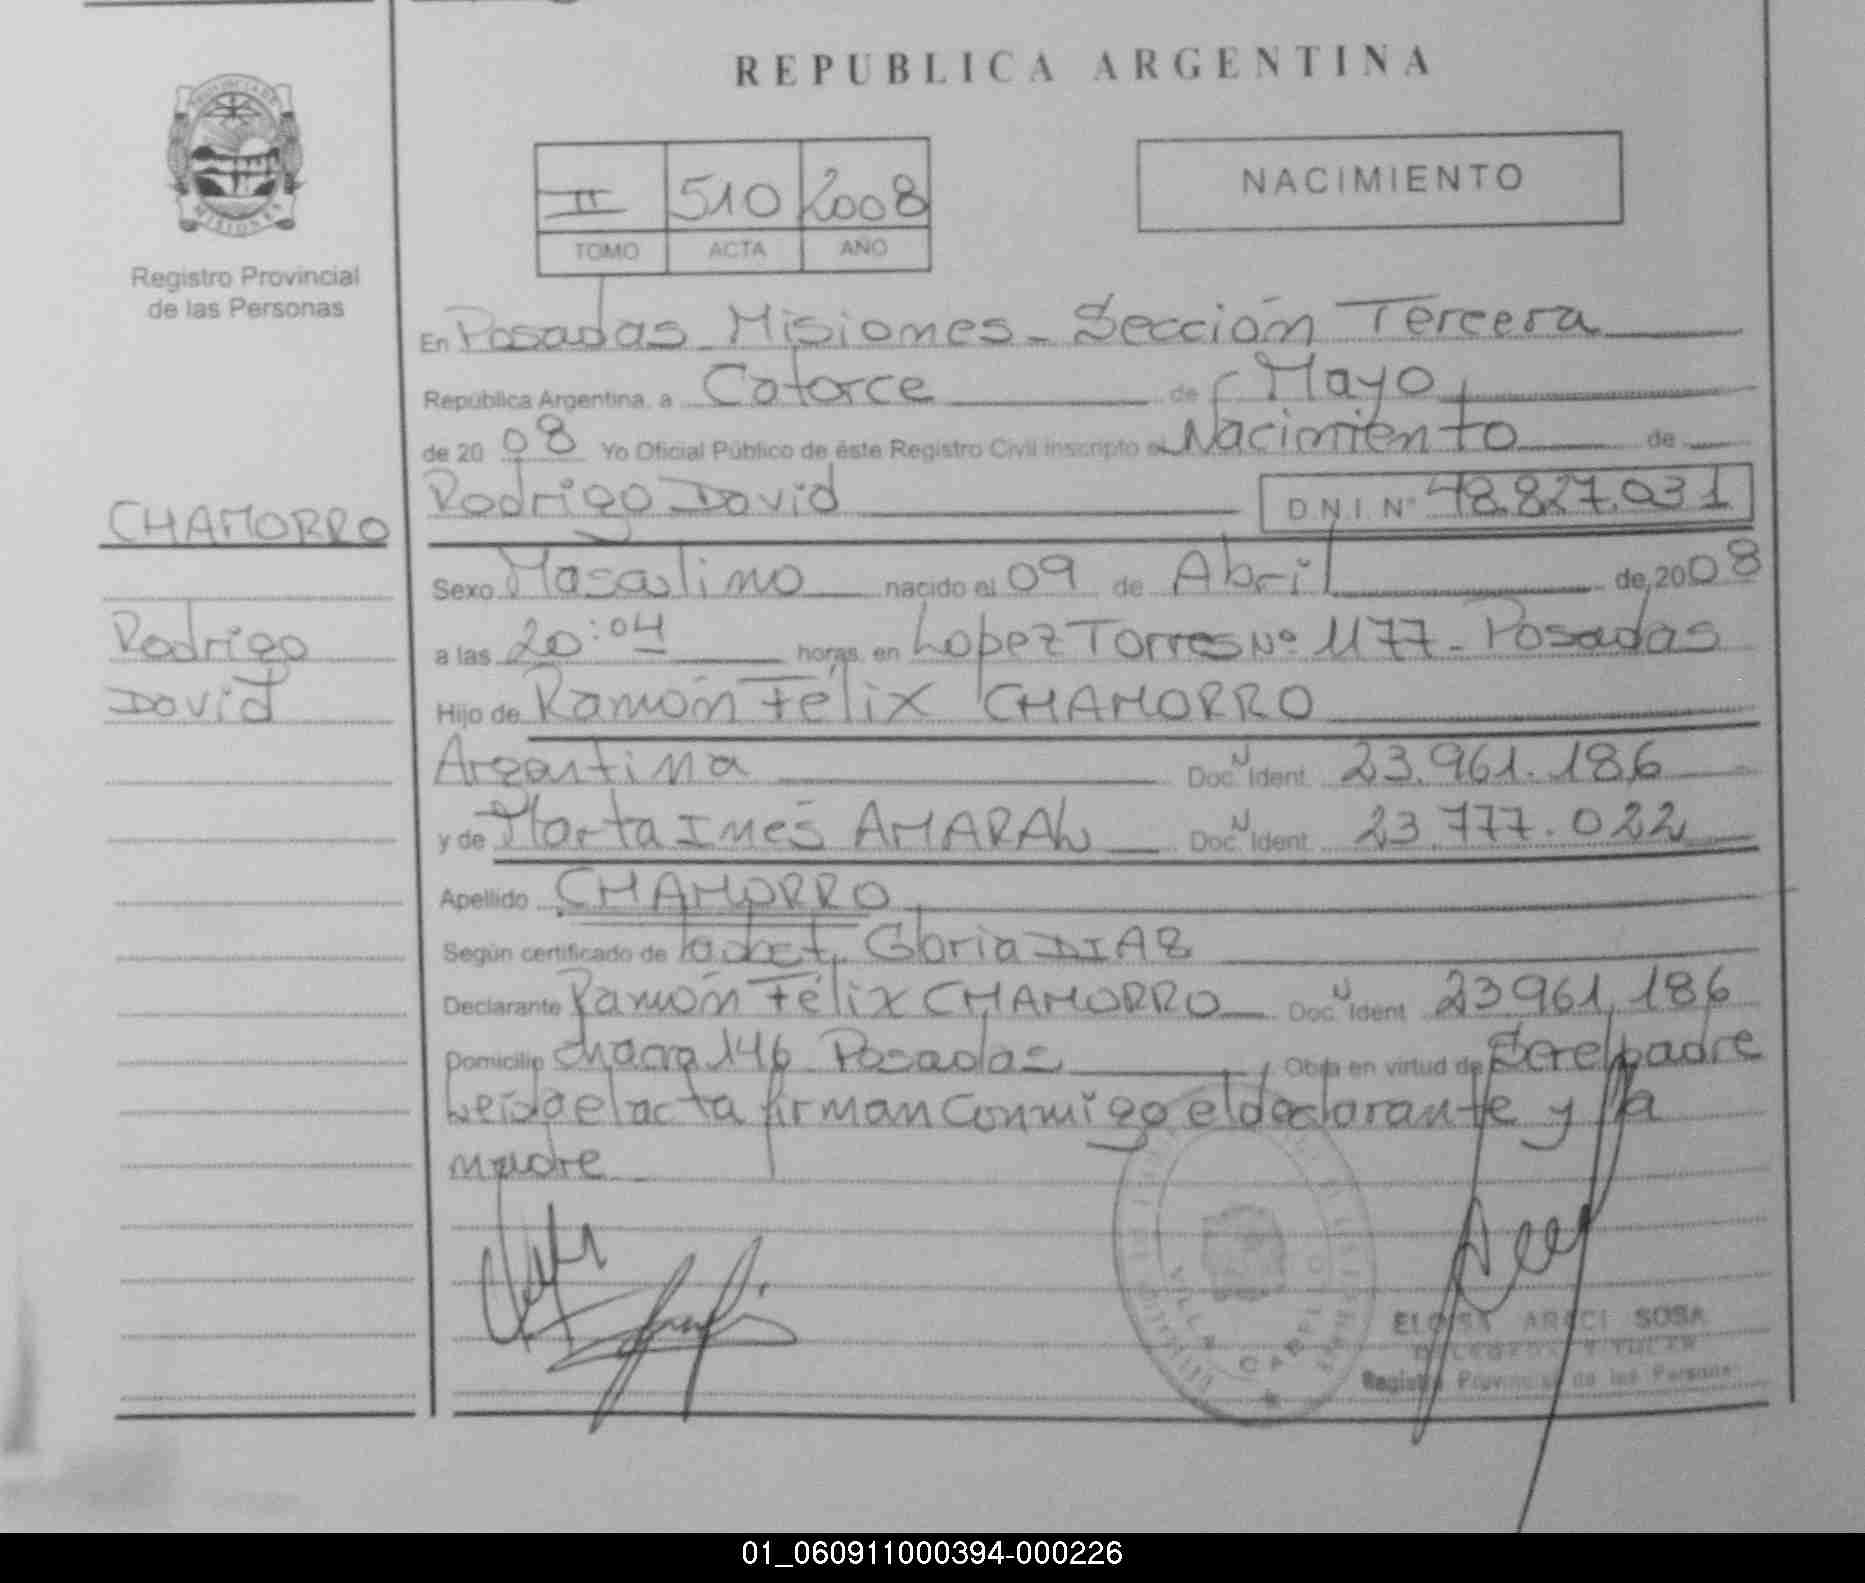 REPUBLICA ARGENTINA
PROVINCIA DE
MISIONES
Registro Provincial
de las Personas
II 510 2008
TOMO ACTA AÑO
NACIMIENTO
En Posadas Misiones - Sección Tercera
República Argentina, a Catorce de Mayo
de 2008 Yo Oficial Público de éste Registro Civil inscripto el Nacimiento de
Rodrigo David D.N.I. Nº 48.827.031
CHAMORRO
Rodrigo
David
Sexo Masculino nacido el 09 de Abril de 2008
a las 20:04 horas, en Lopez Torres Nº 1177 - Posadas
Hijo de Ramón Félix CHAMORRO
Argentina Doc. N Ident. 23.961.186
y de Marta Ines AMARAL Doc. N Ident. 23.777.022
Apellido CHAMORRO
Según certificado de Gloria DIAZ
Declarante Ramón Félix CHAMORRO Doc. N Ident. 23961.186
Domicilio chacra 146 Posadas Obra en virtud de Ser el padre
Leida el acta firman Conmigo el declarante y la
madre
VILLA CABELLO
ELOISA ARECI SOSA
DELEGADA TITULAR
Registro Provincial de las Personas
01_060911000394-000226